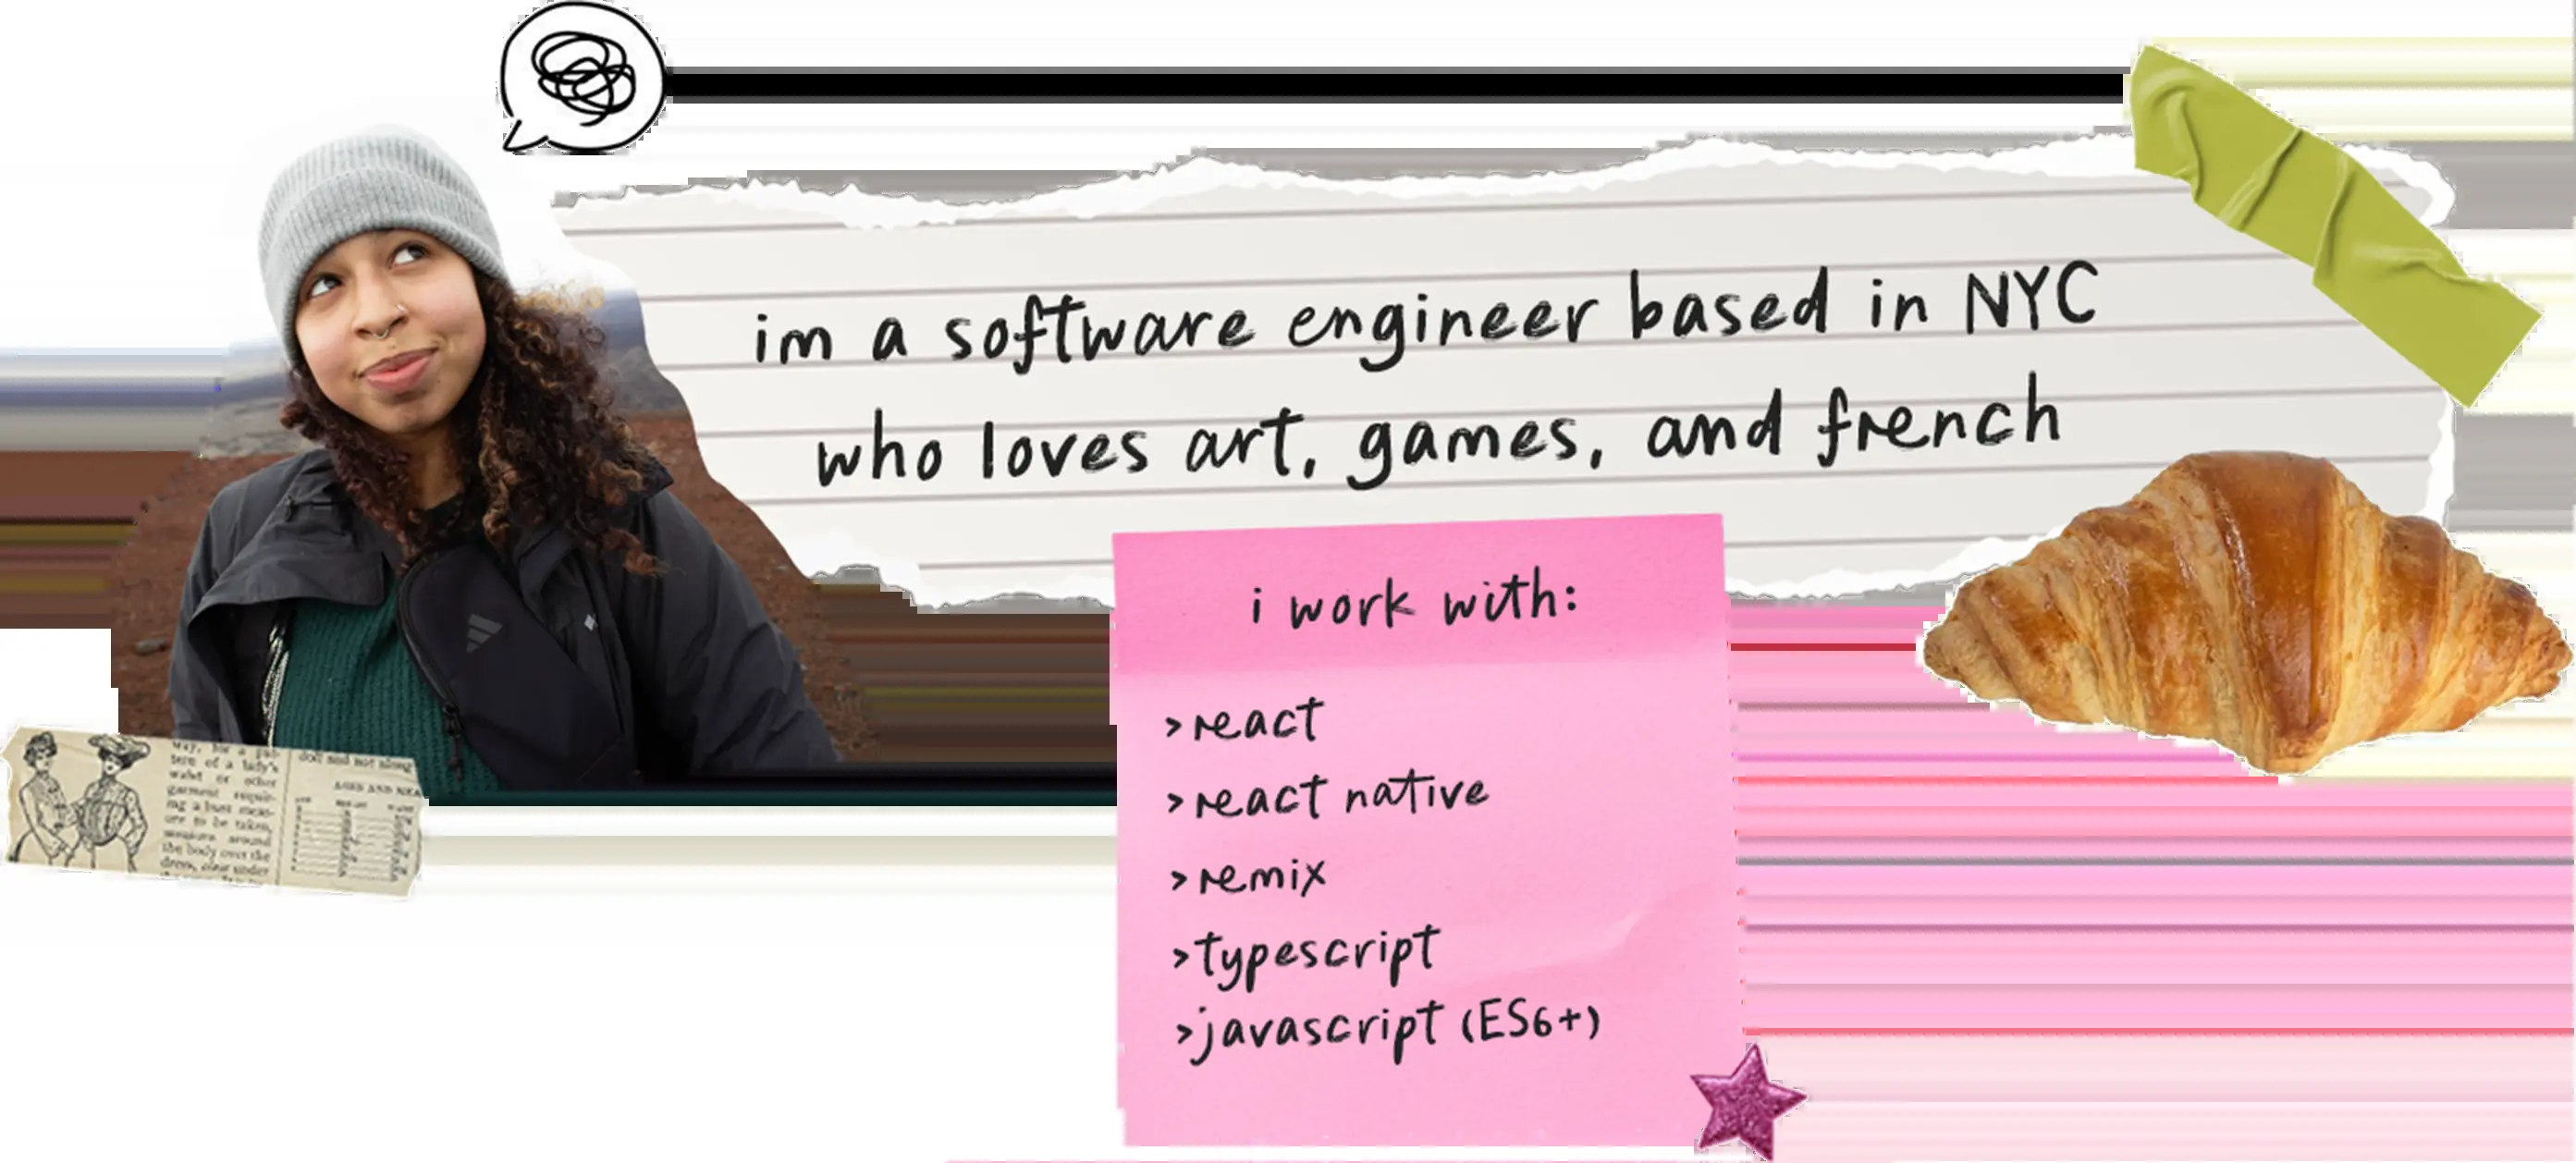 im a software engineer based in NYC
who loves art, games, and french
i work with:
>react
>react native
>remix
>typescript
>javascript (ES6+)
tern of a lady's
waist or other
garment requir-
ing a bust meas-
ure to be taken,
measure around
the body over the
dress, close under